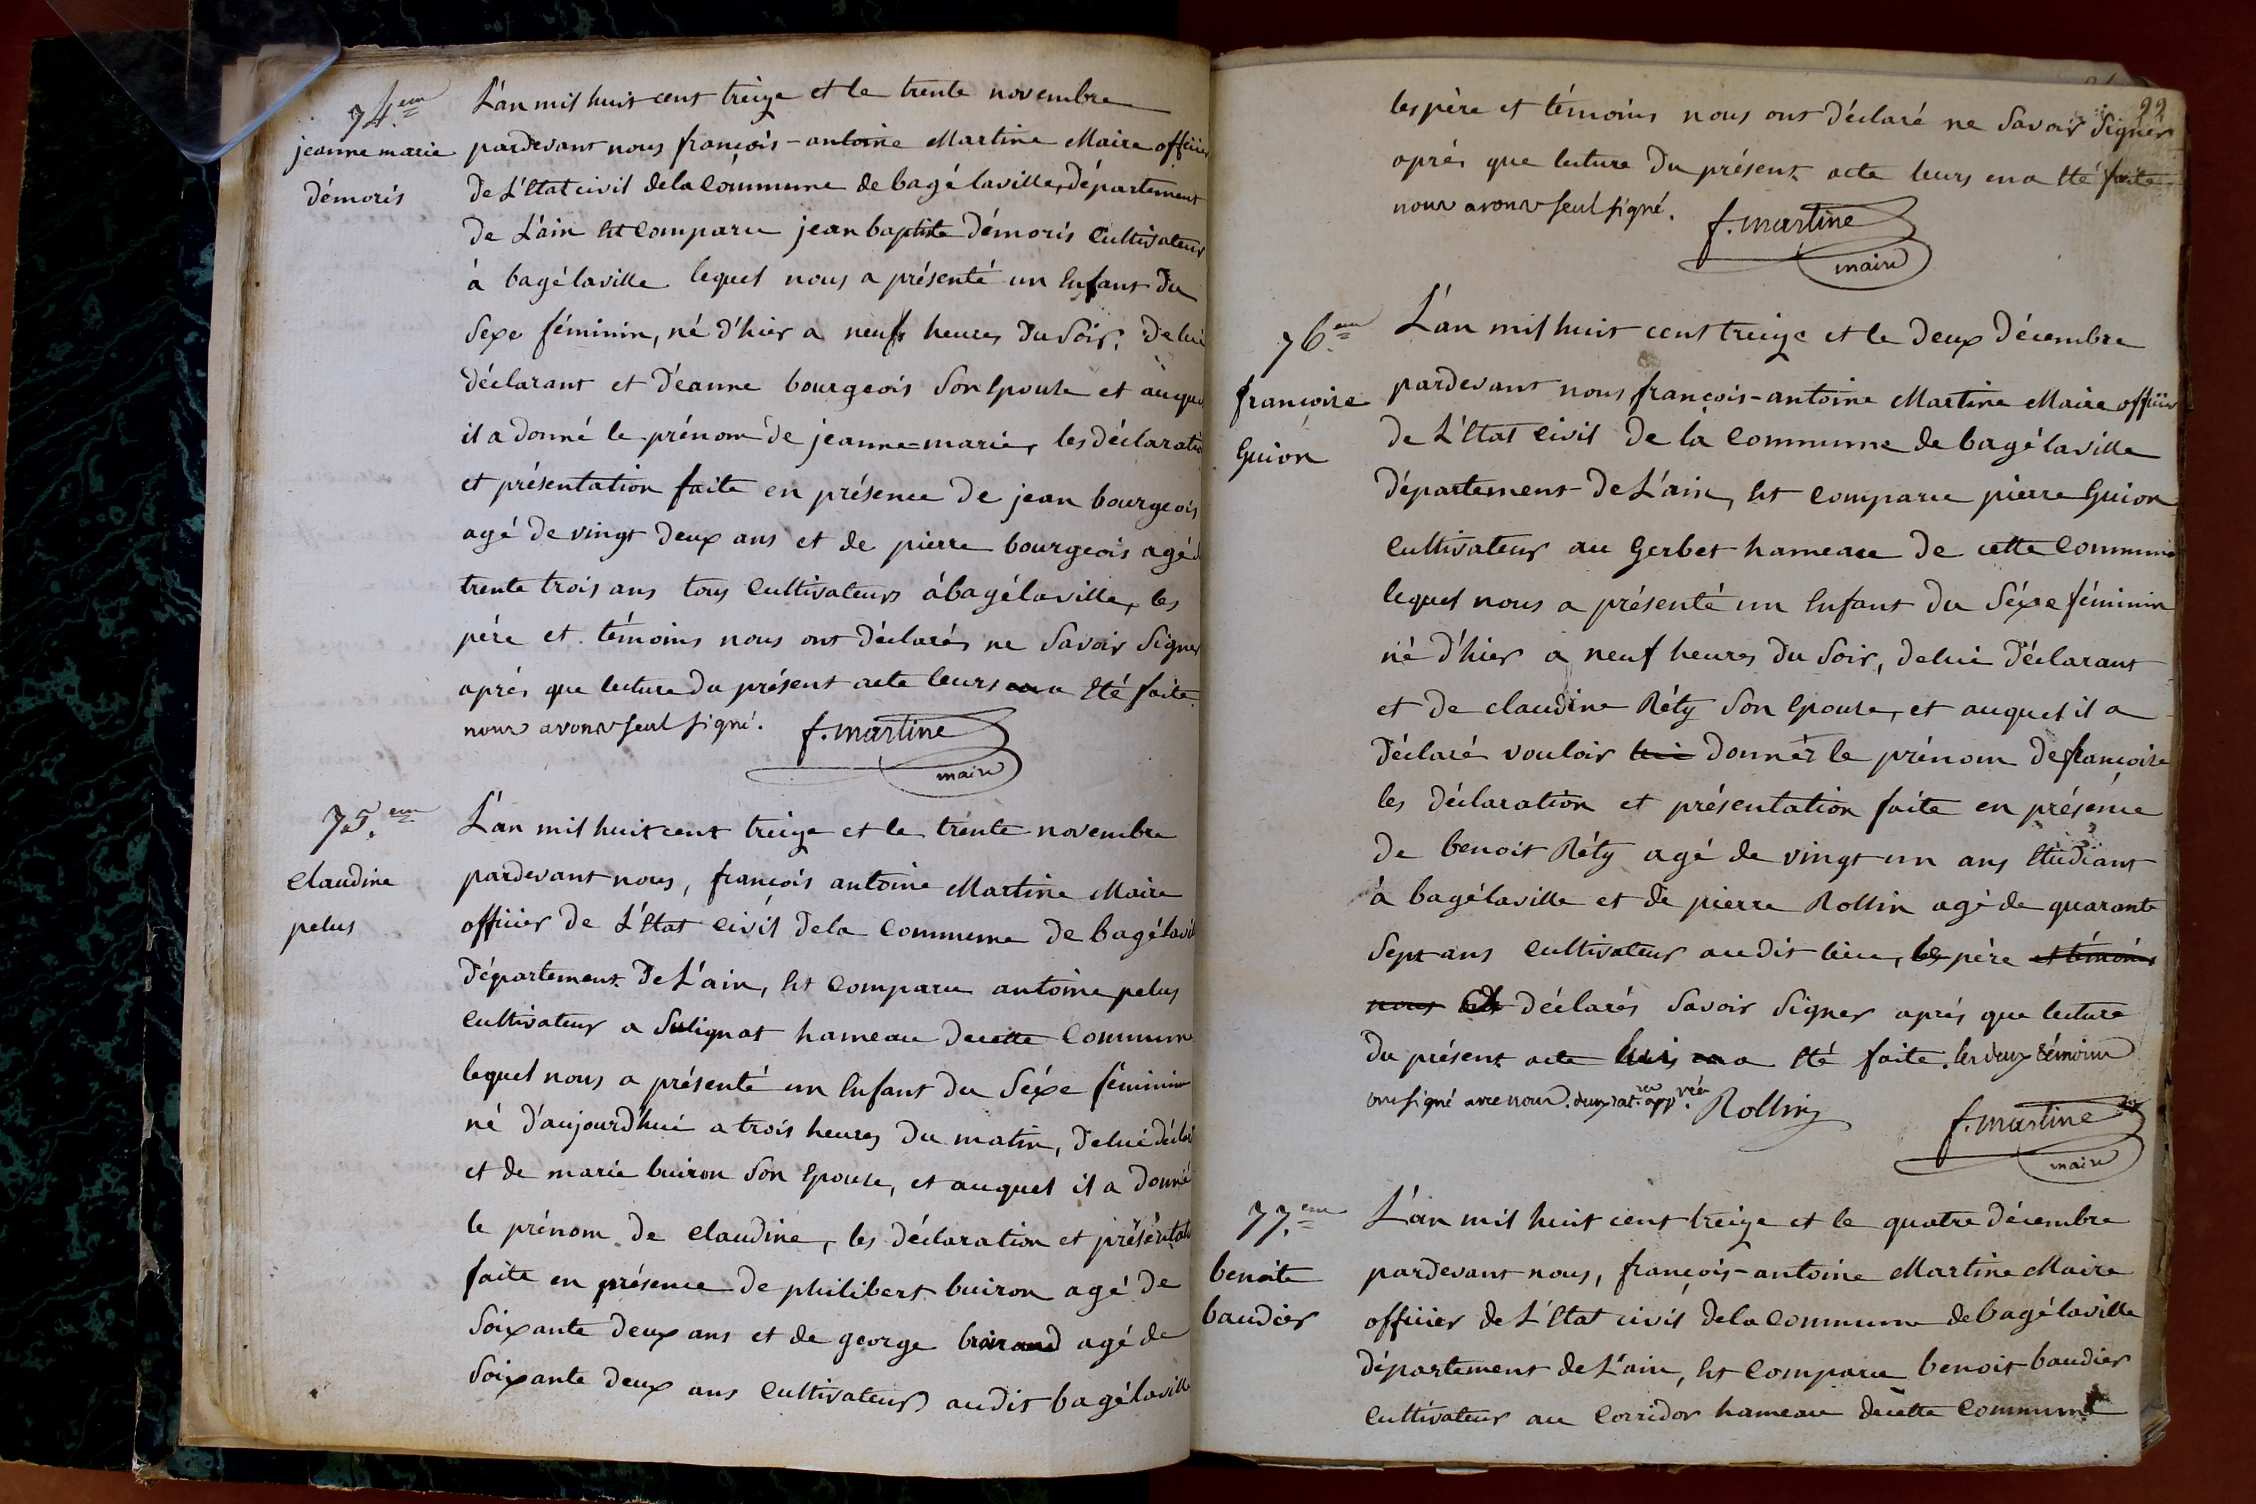 74.em
jeanne marie
démoris
L'an mil huit cent treize et le trente novembre
pardevant nous françois-antoine Martine Maire officier
de L'Etat civil de la Commune de bagé laville, département
de L'ain Est Comparu jean baptiste démoris Cultivateur
à bagé laville lequel nous a présenté un Enfant du
Sexe féminin, né d'hier a neuf heures du Soir, de lui
déclarant et d'éanne bourgeois Son Epouse et auquel
il a donné le prénom de jeanne=marie, les déclaration
et présentation faite en présence de jean bourgeois
agé de vingt deux ans et de pierre bourgeois agé d
trente trois ans tous Cultivateurs à bagé laville, les
père et témoins nous ont déclarés ne Savoir Signer
après que lecture du présent acte leurs en a Eté faite.
nous avons seul signé. f. martine
maire
75.em
Claudine
pelus
L'an mil huit cent treize et le trente novembre
pardevant nous, françois antoine Martine Maire
officier de L'Etat civil de la Commune de bagé lavil
département de L'ain, Est Comparu antoine pelus
Cultivateur a Sulignat hameau de cette Commune
lequel nous a présenté un Enfant du Séxe féminin
né d'aujourd'hui a trois heures du matin, de lui déclar
et de marie buiron Son Epouse, et auquel il a donné
le prénom de claudine, les déclaration et présentat
faite en présence de philibert buiron agé de
Soixante deux ans et de george agé de
Soixante deux ans Cultivateurs audit bagé laville
22
les père et témoins nous ont déclaré ne Savoir Signer
après que lecture du présent acte leurs en a Eté faite
nous avons seul signé. f. martine
maire
76.em
françoise
Guion
L'an mil huit cent treize et le deux décembre
pardevant nous françois-antoine Martine Maire officier
de L'Etat Civil de la Commune de bagé laville
département de L'ain, Est Comparu pierre Guion
Cultivateur au Gerbet hameau de cette Commune
lequel nous a présenté un Enfant du Séxe féminin
né d'hier a neuf heures du Soir, de lui déclarant
et de claudine Réty Son Epouse, et auquel il a
déclaré vouloir lui donner le prénom de françoise
les déclaration et présentation faite en présence
de benoit Réty agé de vingt un ans Etudiant
à bagé laville et de pierre Rollin agé de quarante
Sept ans Cultivateur audit lieu, les père et témoins
nous déclarés Savoir Signer après que lecture
du présent acte lui en a Eté faite. les deux témoins
ont signé avec nous. deux rat.res app.vées Rollin f. martine
maire
77.em
benoite
baudier
L'an mil huit cent treize et le quatre décembre
pardevant nous, françois-antoine Martine Maire
officier de L'Etat civil de la Commune de bagé laville
département de L'ain, Est Comparu benoit baudier
Cultivateur au Corridor hameau de cette Commune